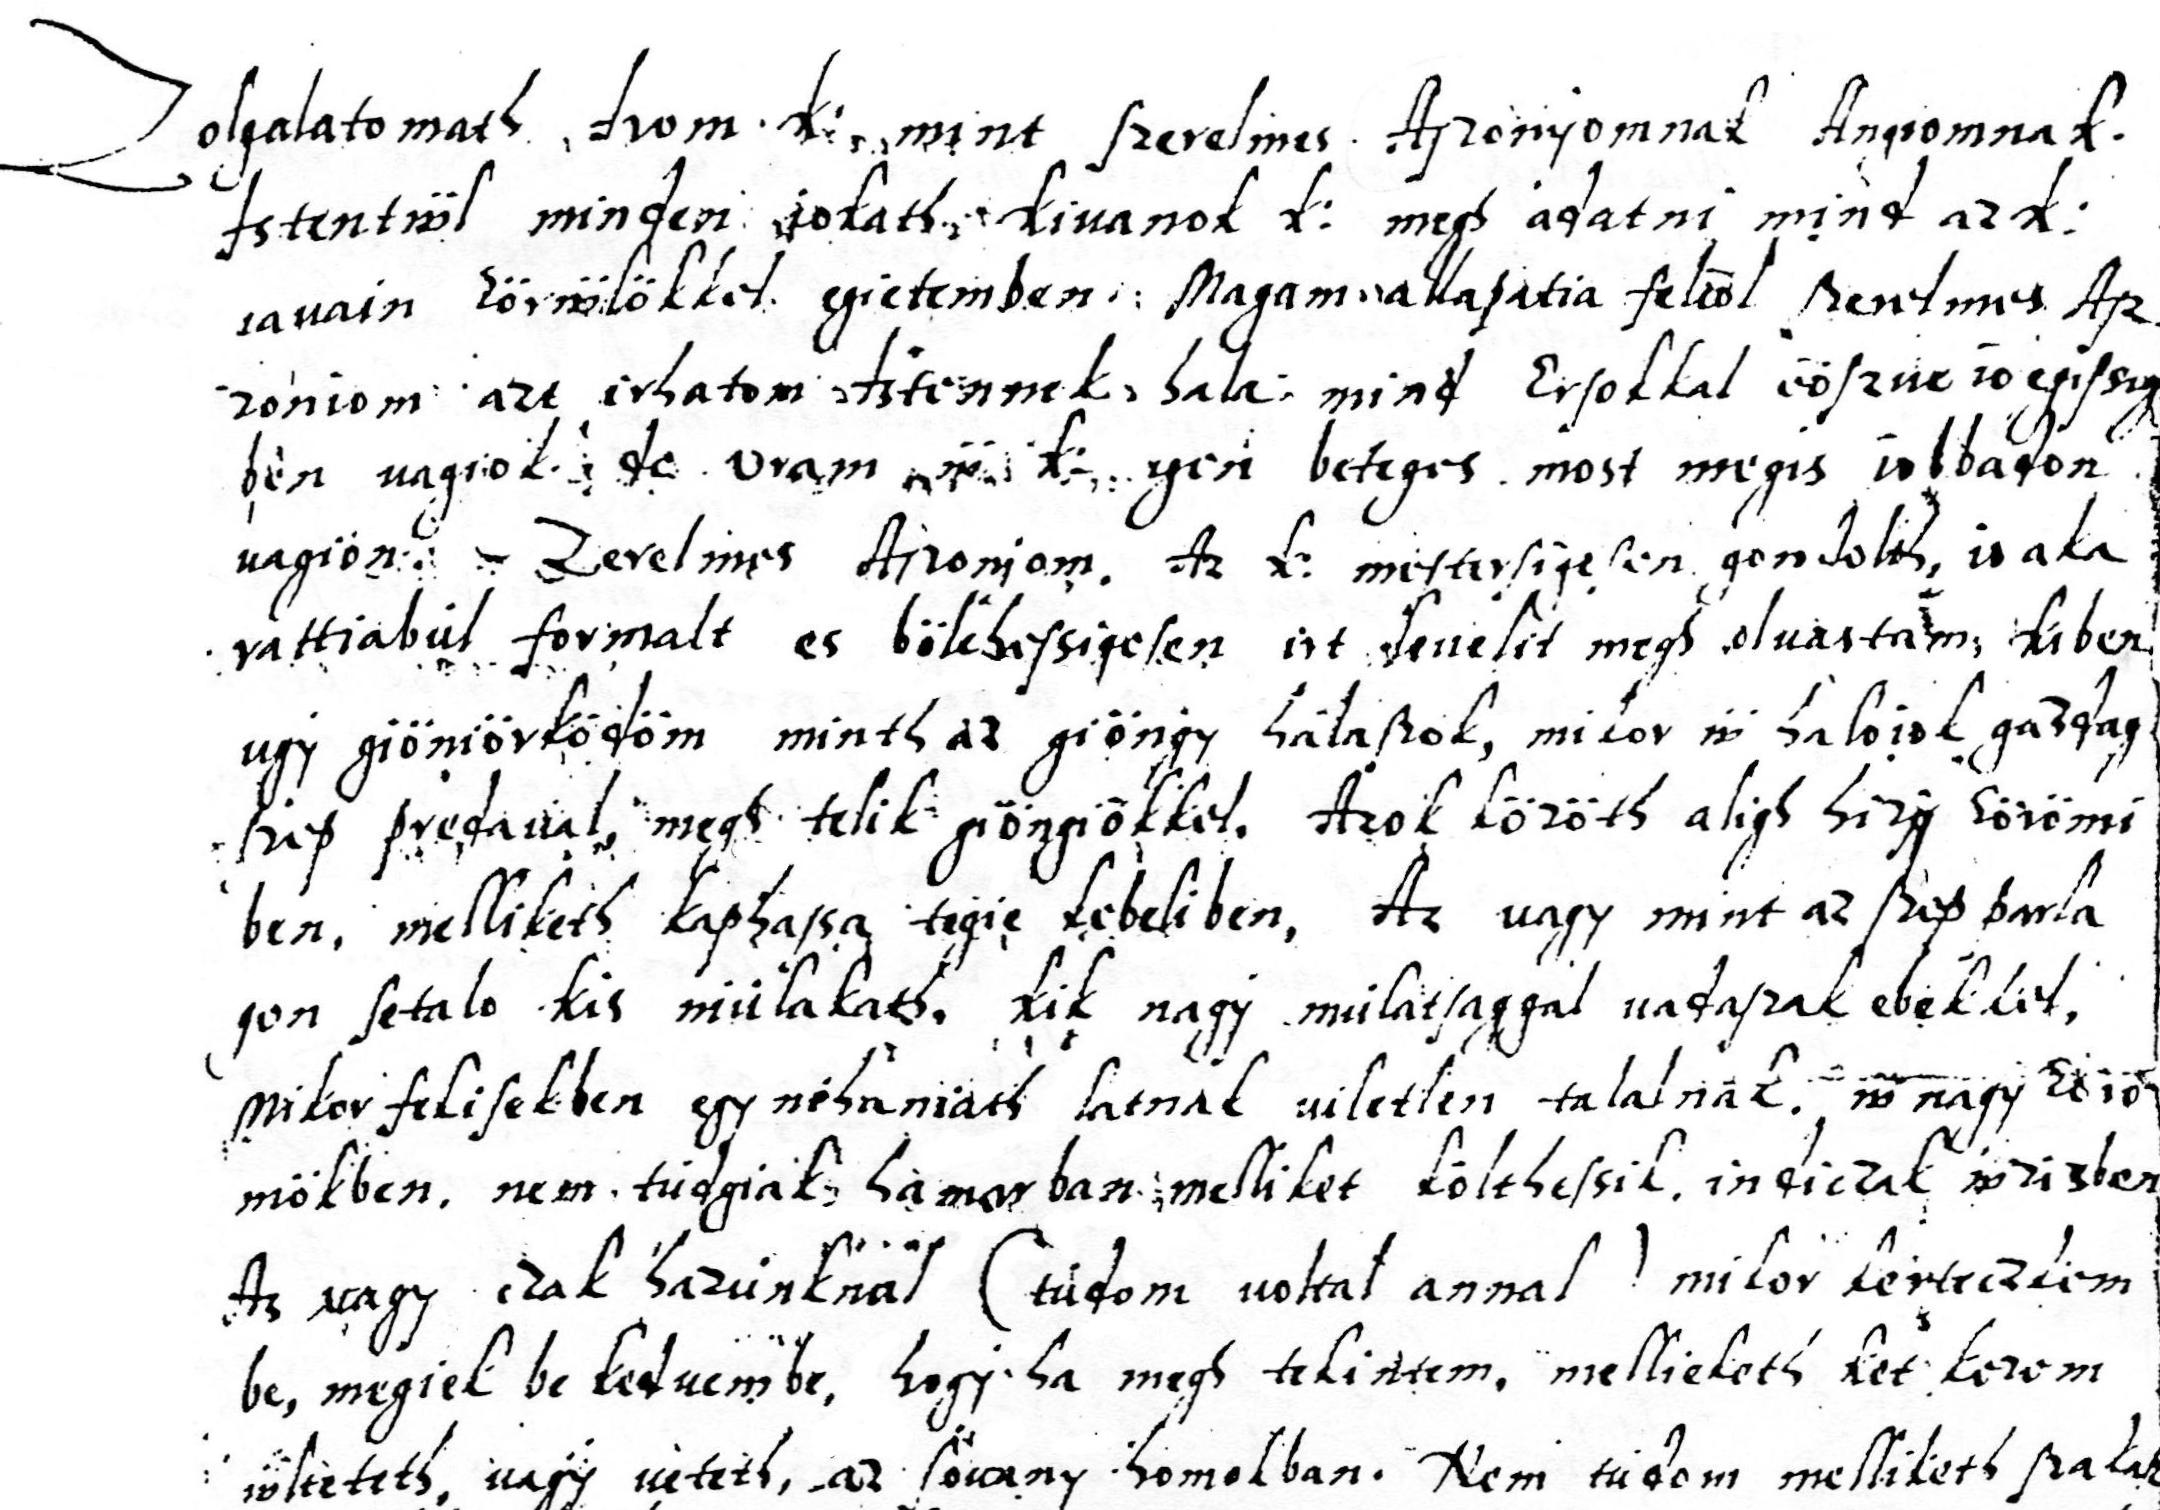 Zolgalatomath irom k: mint szerelmes Aszonyomnak Angiomnak.
Istentwl minden iokath kiuanok k: megh adatni mind az k:
iauain körwlökkel egietemben: Magam allapatia felwl szerelmes Asz
zoniom azt irhatom Istennek hala: mind Ersokkal eöszue io egissig
ben uagiok: de Vram w k: igen beteges most megis iobbadon
uagion: Zerelmes Aszoniom. Az k: mestersigesen gondolth, io aka
rattiabul formalt es bölchessigesen irt leuelit megh oluastam, kiben
ugy giöniörködöm minth az giöngy halaszok, mikor w haloiok gazdag
szep predaual, megh telik giöngiökkel. Azok között aligh hizy körömi
ben, melliketh kaphassa tegie kebeliben, Az vagy mint az szep parla
gon setalo kis niulakath, kik nagy mulatsaggal uadaszak ebekkel,
Mikor fekisekben egy nehaniath latnak uiletlen talalnak. w nagy körö
mökben. nem tudgiak hamarban melliket költhessik. indiczak wzisben
Az vagy czak hazunknal (tudom uoltal annal) mikor kerteczkem
be, megiek be keduembe, hogy ha megh tekintem, mellieketh ket kezem
wlteteth, uagy ueteth, az souany homokban. Nem tudom melliketh szakaz